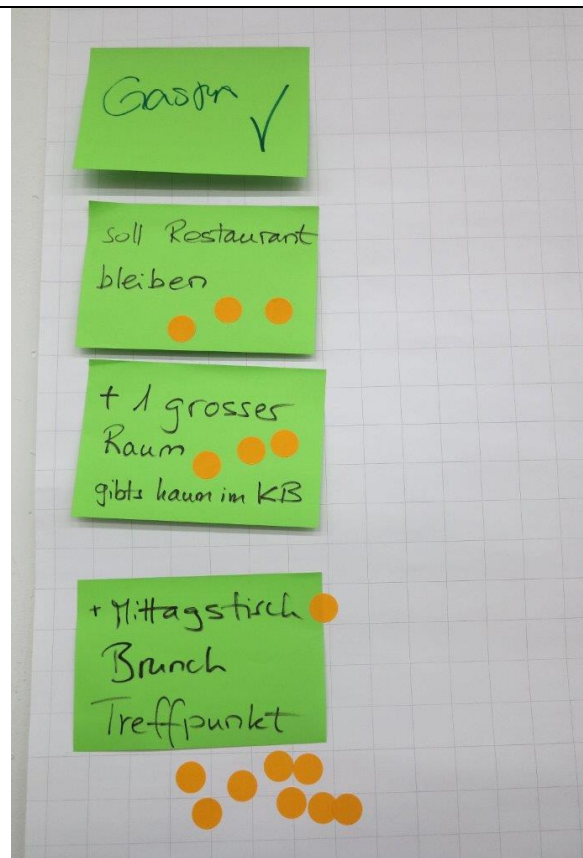 Gastro ✓
soll Restaurant
bleiben
+ 1 grosser
Raum
gibts kaum im KB
+ Mittagstisch
Brunch
Treffpunkt